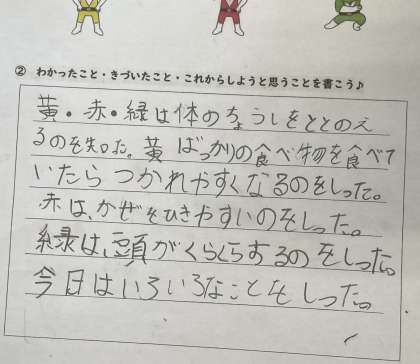 ② わかったこと・きづいたこと・これからしようと思うことを書こう♪
黄・赤・緑は体のちょうしをととのえ
るのを知った。黄ばっかりの食べ物を食べて
いたらつかれやすくなるのをしった。
赤は、かぜをひきやすいのをしった。
緑は、頭がくらくらするのをしった。
今日はいろいろなことをしった。